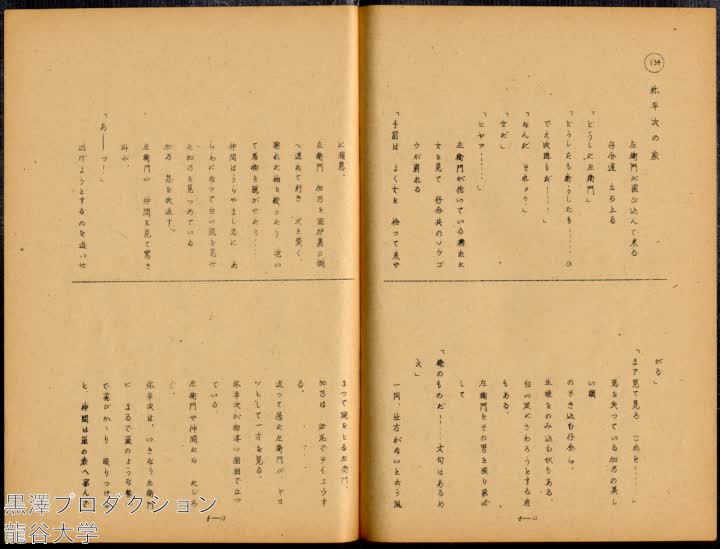 134
弥平次の家
左衛門が飛び込んで来る
仔分達 立ち上る
「どうした左衛門」
「どうしたも斯うしたも……ひ
でえ吹降りだ……」
「なんだ それァ？」
「女だ」
「ヒヤァ……」
左衛門が抱いている濡れた
女を見て 仔分共のソウゴ
ウが崩れる
「手前は よく女を 拾って来や
がる」
「まア見て見ろ これを……」
気を失っている加乃の美し
い顔
のぞき込む仔分ら。
生唾をのみ込む奴もある。
白い足にさわろうとする者
もある。
左衛門とその男を殴り飛ば
して
「俺のものだ！……文句はあるめ
え」
一同、仕方がないと云う風
に溜息。
左衛門 加乃を囲炉裏の側
へ連れて行き 火を焚く。
濡れた袖を絞ったり 這い
て着物を脱がせたり……
仲間はうらやまし気に あ
らわになって白い肌を見せ
た加乃を見つめている
加乃 息を吹返す。
左衛門や 仲間を見て驚き
叫ぶ
「あ――っ！」
逃げようとするのを追いせ
まって腕をとる左衛門。
加乃は 必死でテイコウす
る。
追って居た左衛門が トヨ
ッとして一方を見る。
弥平次が物凄い面相で立つ
ている
左衛門や仲間たち たじろ
ぐ。
弥平次は、いきなり左衛門
に まるで嵐のような勢
で飛びかゝり 殴りつける
と 仲間は嵐の表へ
8―12
8―13
黒澤プロダクション
龍谷大学